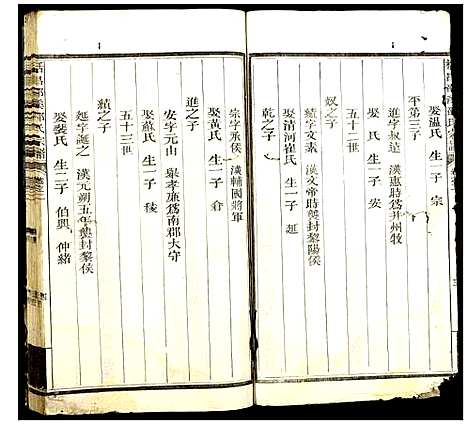 娶溫氏 生一子 宗
平第三子
進字叔達 漢惠時爲并州牧
娶 氏 生一子 安
五十二世
奴之子
績字文素 漢文帝時襲封黎陽侯
娶清河崔氏 生一子 延
乾之子
宗字承侯 漢輔國將軍
娶黃氏 生一子 倉
進之子
安字元山 舉孝廉爲南郡大守
娶蘇氏 生一子 稜
五十三世
績之子
延字誕之 漢元朔五年襲封黎侯
娶裴氏 生二子 伯興 仲緒